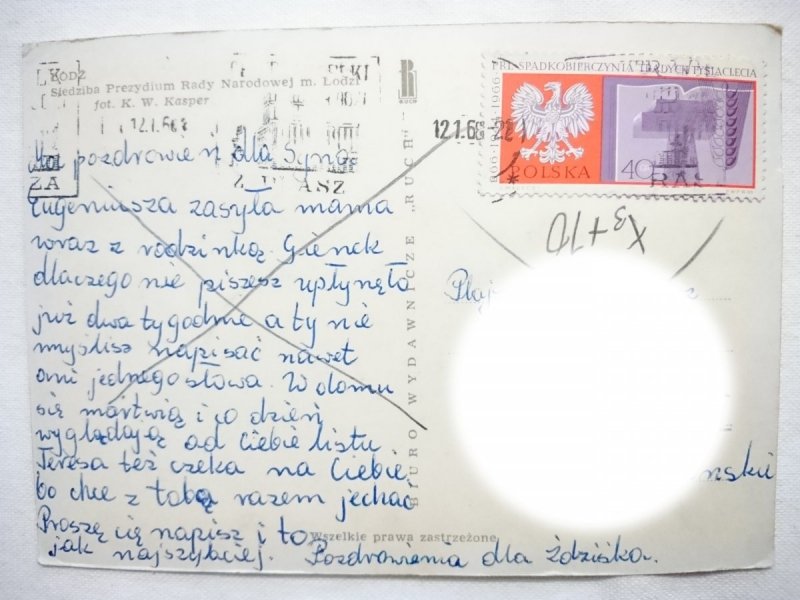 ŁÓDŹ
Siedziba Prezydium Rady Narodowej m. Łodzi
fot. K. W. Kasper
12.1.68
pozdrowień dla Syna
Eugeniusza zasyła mama
wraz z rodzinką. Gienek
dlaczego nie piszesz upłynęło
już dwa tygodnie a ty nie
myślisz napisać nawet
ani jednego słowa. W domu
się martwią i co dzień
wyglądają od Ciebie listu
Teresa też czeka na Ciebie
bo chce z tobą razem jechać
Proszę cię napisz i to
jak najszybciej. Pozdrowienia dla Zdziśka.
BIURO WYDAWNICZE „RUCH"
RUCH
Wszelkie prawa zastrzeżone
PRL SPADKOBIERCZYNIĄ TYSIĄCLECIA
966-1966
POLSKA
40
12.1.68
X3+10